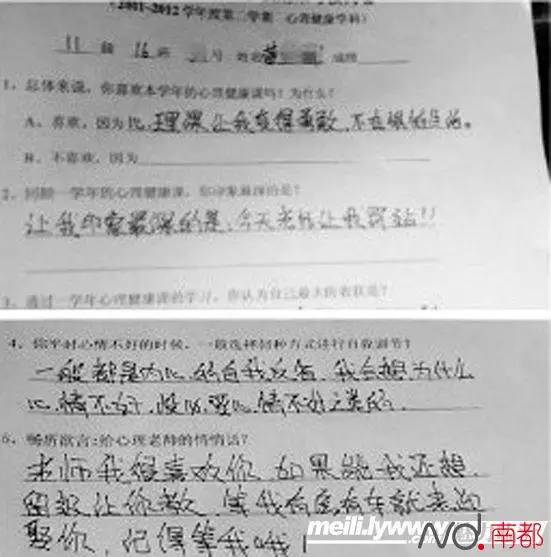 (2011-2012学年度第二学期 心理健康学科)
11 级 16 班 号 姓名 成绩
1、总体来说，你喜欢本学年的心理健康课吗？为什么？
A、喜欢，因为心理课让我变得勇敢，不在
B、不喜欢，因为
2、回顾一学年的心理健康课，你印象最深的是？
让我印象最深的是，今天老师让我罚站!!
3、通过一学年心理健康课的学习，你认为自己最大的收获是？
4、你平时心情不好的时候，一般选择何种方式进行自我调节？
一般都是内心的自我反省，我会想为什么
心情不好，心情不好之类的。
5、畅所欲言:给心理老师的悄悄话？
老师我很喜欢你 如果能我还想
让你教 等我有房有车就来迎
娶你，记得等我哦！
meili.lyww
ND.南都